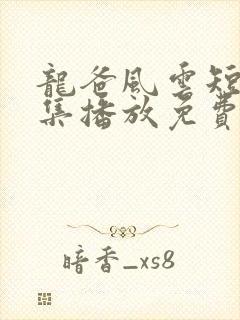 龍爸風雲短
集播放免費
暗香_xs8